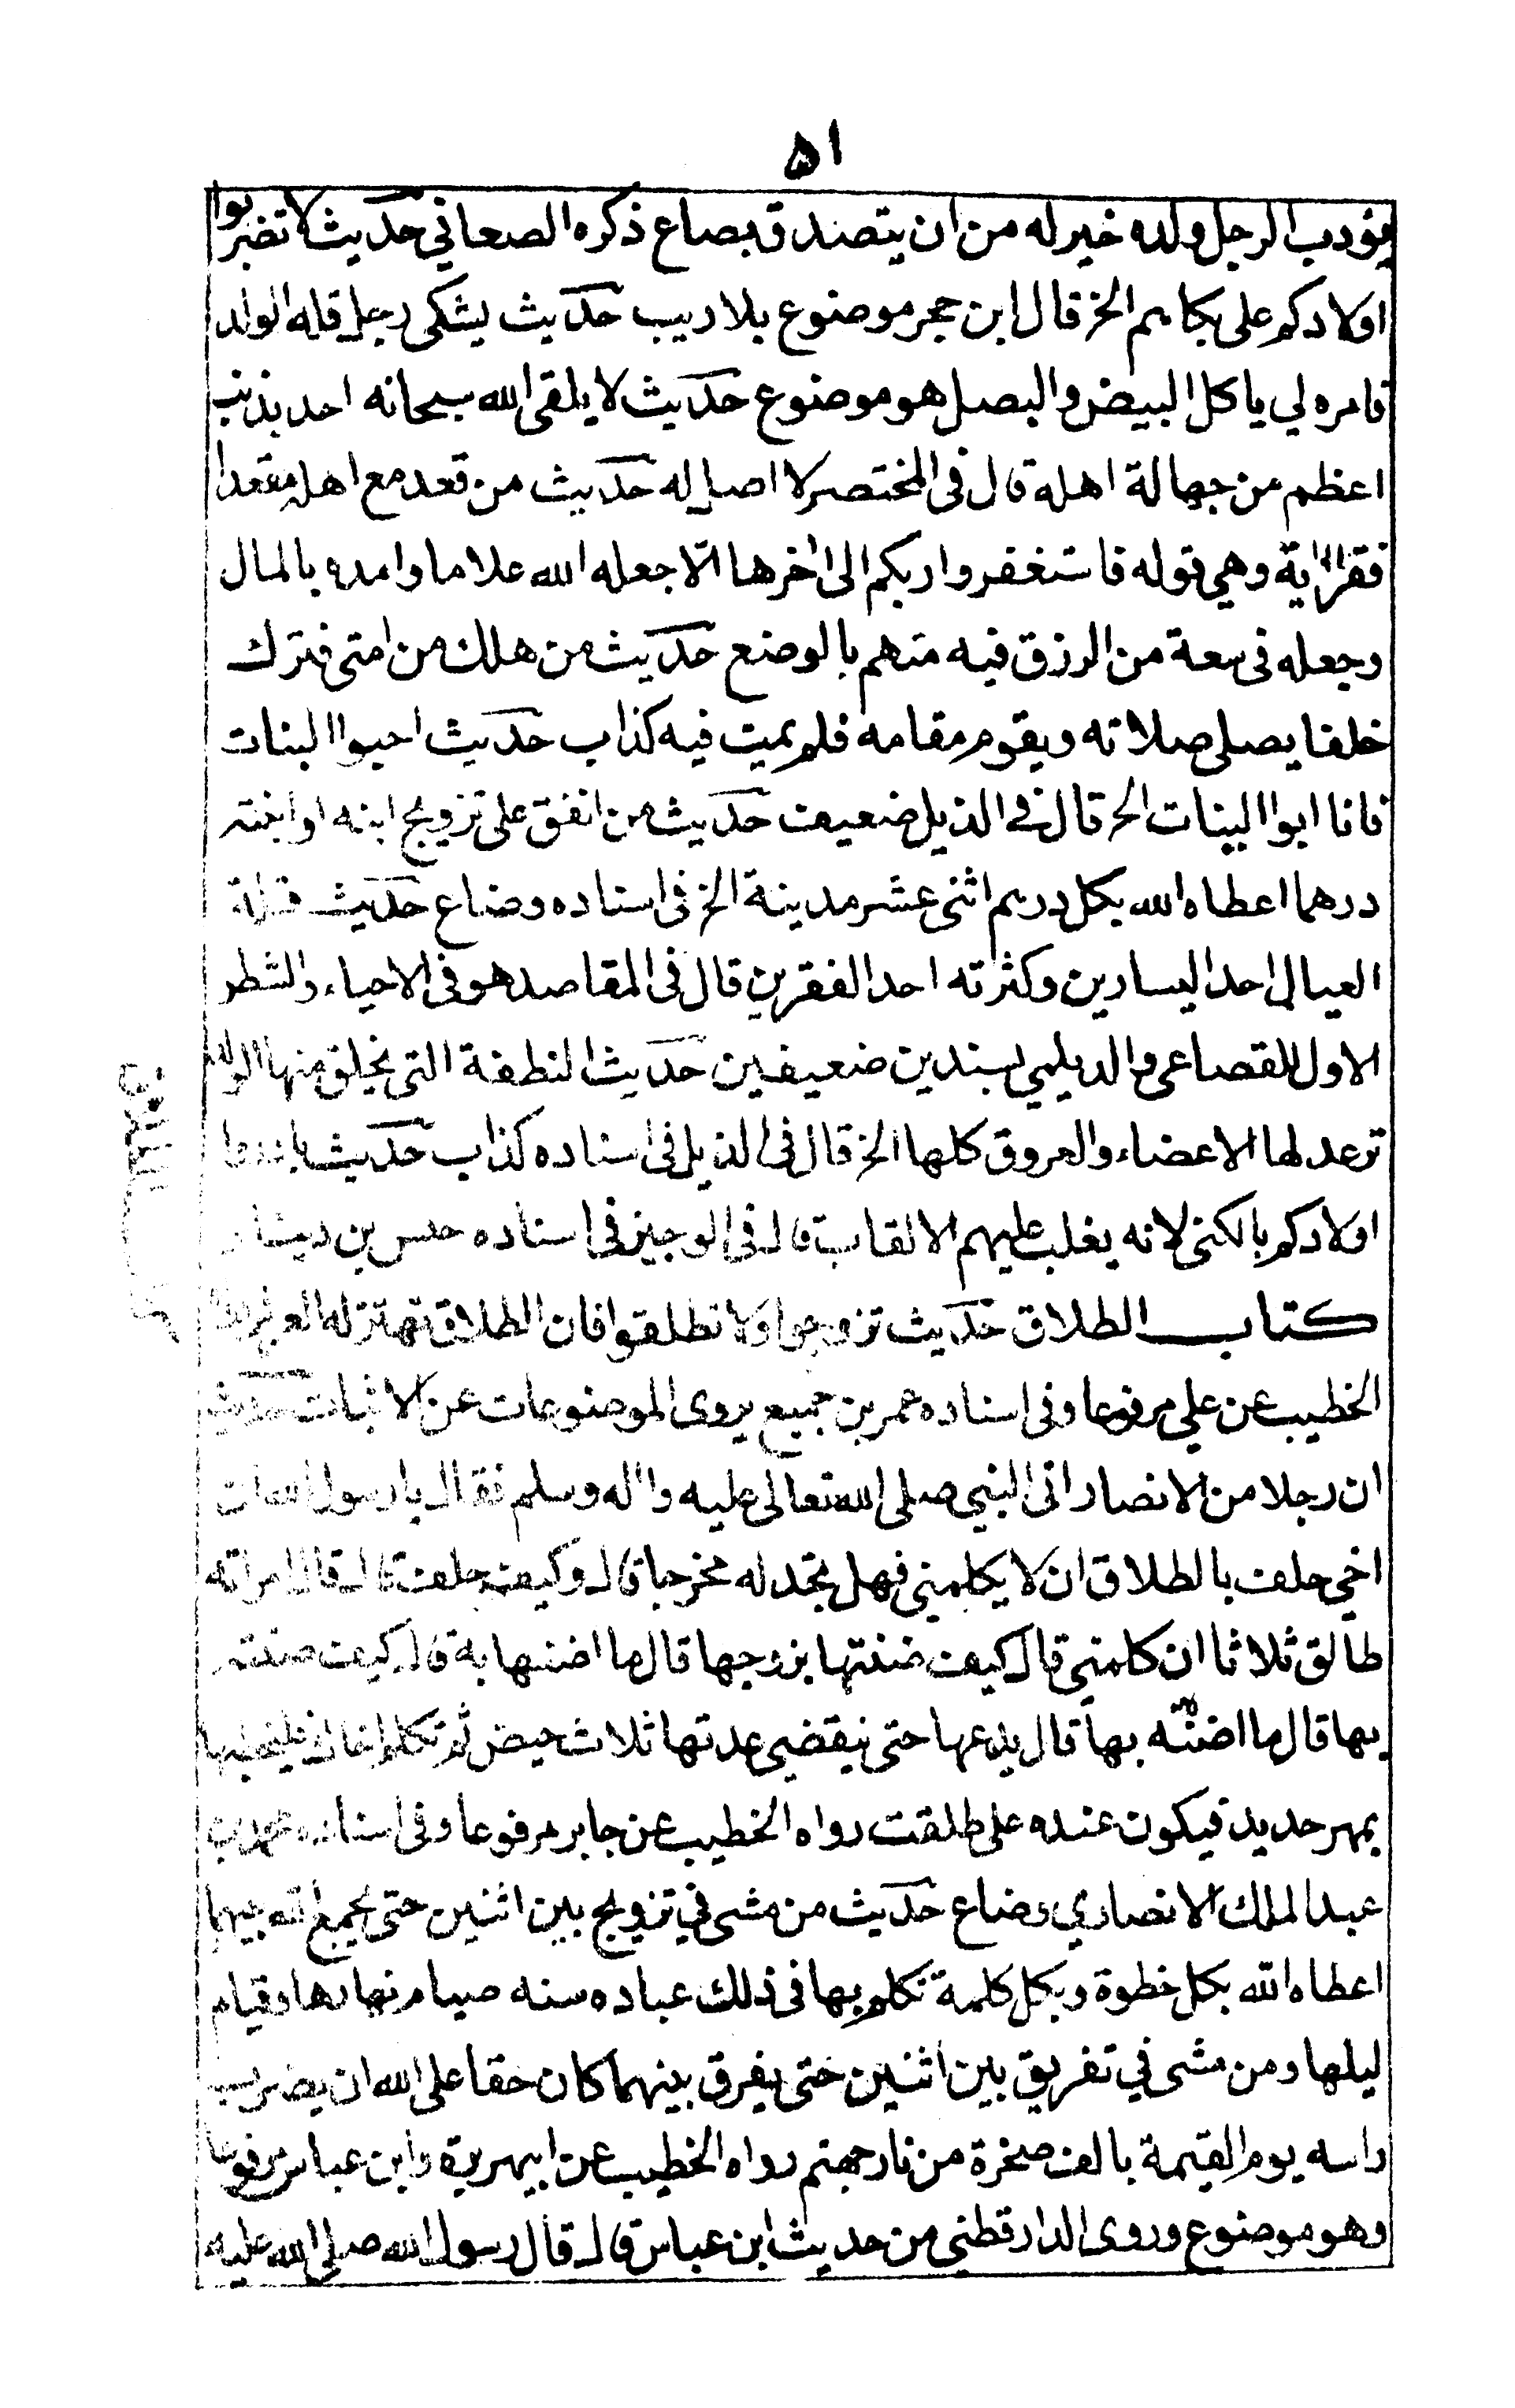 ٥١
يؤدب الرجل ولده خير له من ان يتصدق بصاع ذكره الصعاني حديث لا تضربوا
اولادكم على بكائهم الخ قال ابن حجر موضوع بلا ريب حديث يشكى رجل قلة الولد
فامره لي ياكل البيض والبصل هو موضوع حديث لا يلقى الله سبحانه احد بذنب
اعظم من جهالة اهله قال فى المختصر لا اصل له حديث من قعد مع اهله مقعدا
فقرا اية وهي قوله فاستغفروا ربكم الى اخرها الا جعله الله علاما وامده بالمال
وجعله فى سعة من الرزق فيه متهم بالوضع حديث من هلك من امتى فترك
خلفا يصلى صلاته ويقوم مقامه فلم يمت فيه كذاب حديث احبوا البنات
فانا ابوا البنات الخ قال فى الذيل ضعيف حديث من انفق على تزويج ابنه او ابنته
درهما اعطاه الله بكل درهم اثنى عشر مدينة الخ فى اسناده وضاع حديث قلة
العيال احد اليسارين وكثرته احد الفقرين قال فى المقاصد هو فى الاحياء والشطر
الاول للقضاعى والديلمي بسندين ضعيفين حديث النطفة التى يخلق منها الولد
ترعد لها الاعضاء والعروق كلها الخ قال فى الذيل فى اسناده كذاب حديث
اولادكم بالكنى لانه يغلب عليهم الالقاب قال فى الوجيز فى اسناده حبس بن دينار
كتاب الطلاق حديث تزوجوا ولا تطلقوا فان الطلاق تهتز له العرش
الخطيب عن علي مرفوعا وفى اسناده عمر بن جميع يروى الموضوعات عن الاثبات حديث
ان رجلا من الانصار اتى النبي صلى الله تعالى عليه واله وسلم فقال يا رسول الله ان
اخي حلف بالطلاق ان لا يكلمني فهل تجد له مخرجا قال وكيف حلف قال قال امراته
طالق ثلاثا ان كلمني قال كيف ضنتها بزوجها قال ما اضنها به قال كيف ضنته
بها قال ما اضنه بها قال يدعها حتى ينقضي عدتها ثلاث حيض ثم تكلم اخاك فليخطبها
بمهر جديد فيكون عنده على طلقت رواه الخطيب عن جابر مرفوعا وفى اسناده محمد بن
عبد الملك الانصاري وضاع حديث من مشى في تزويج بين اثنين حتى يجمع الله بينهما
اعطاه الله بكل خطوة وبكل كلمة تكلم بها فى ذلك عباده سنه صيام نهارها وقيام
ليلها ومن مشى في تفريق بين اثنين حتى يفرق بينهما كان حقا على الله ان يضرب
راسه يوم القيمة بالف صخرة من نار جهنم رواه الخطيب عن ابيهريرة وابن عباس مرفوعا
وهو موضوع وروى الدارقطني من حديث ابن عباس قال قال رسول الله صلى الله عليه